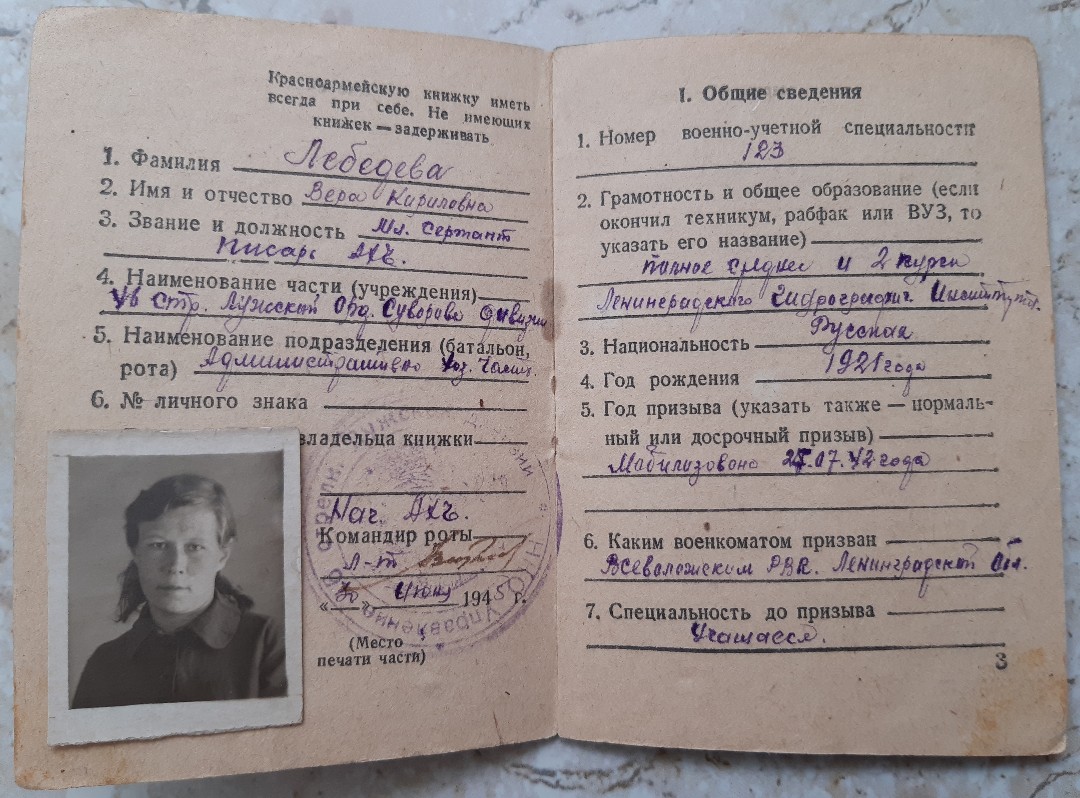 Красноармейскую книжку иметь
всегда при себе. Не имеющих
книжек — задерживать
1. Фамилия Лебедева
2. Имя и отчество Вера Кириловна
3. Звание и должность Мл. Сержант
Писарь АХЧ.
4. Наименование части (учреждения)
Стр. Лужской Орд. Суворова дивизии
5. Наименование подразделения (батальон,
рота) Административно Хоз. Часть.
6. № личного знака
владельца книжки
Нач. АХЧ.
Командир роты
Л-т
«30» Июня 1945 г.
(Место
печати части)
Управление
I. Общие сведения
1. Номер военно-учетной специальности
123
2. Грамотность и общее образование (если
окончил техникум, рабфак или ВУЗ, то
указать его название)
полное среднее и 2 курса
Ленинградского Гидрографич. Института.
3. Национальность Русская
4. Год рождения 1921 года
5. Год призыва (указать также — нормаль-
ный или досрочный призыв)
Мобилизована 07.42 года
6. Каким военкоматом призван
Всеволожским РВК. Ленинградской Обл.
7. Специальность до призыва
Учащаеся.
3